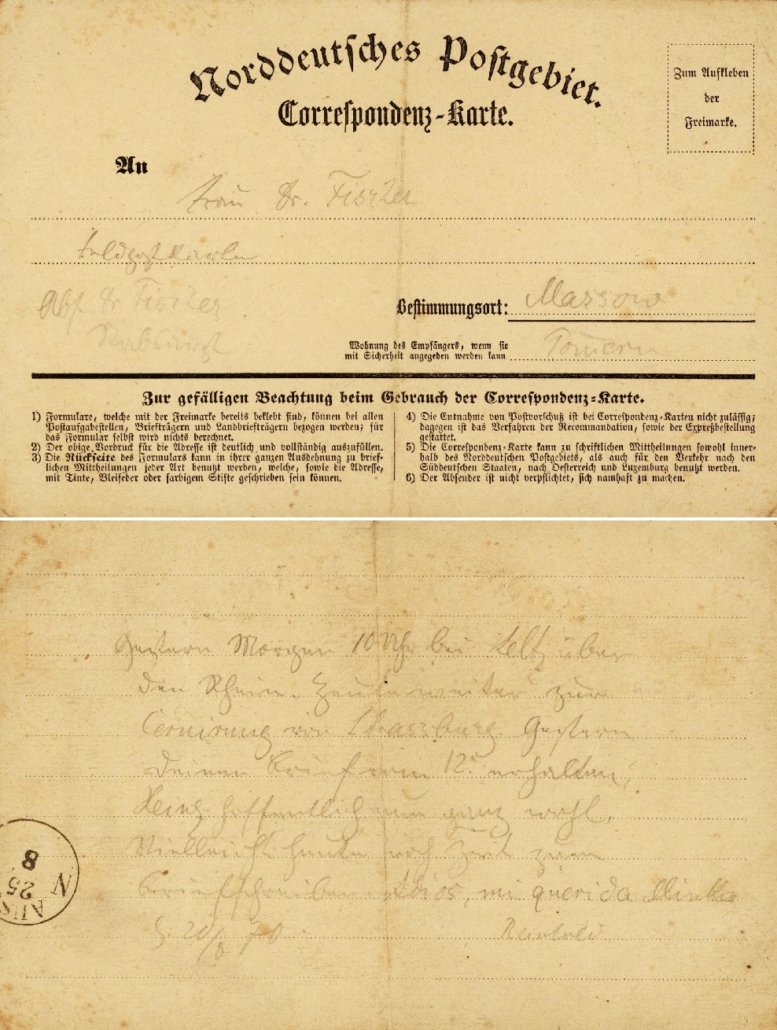 Norddeutsches Postgebiet.
Correspondenz-Karte.
Zum Aufkleben
der
Freimarke.
An
Frau Dr. Fischer
Feldpostkarte
Abs. Dr Fischer
Stabsarzt
Bestimmungsort: Massow
Wohnung des Empfängers, wenn sie
mit Sicherheit angegeben werden kann
Pommern
Zur gefälligen Beachtung beim Gebrauch der Correspondenz-Karte.
1) Formulare, welche mit der Freimarke bereits beklebt sind, können bei allen
Postaufgabestellen, Briefträgern und Landbriefträgern bezogen werden; für
das Formular selbst wird nichts berechnet.
2) Der obige Vordruck für die Adresse ist deutlich und vollständig auszufüllen.
3) Die Rückseite des Formulars kann in ihrer ganzen Ausdehnung zu brief-
lichen Mittheilungen jeder Art benutzt werden, welche, sowie die Adresse,
mit Tinte, Bleifeder oder farbigem Stifte geschrieben sein können.
4) Die Entnahme von Postvorschuß ist bei Correspondenz-Karten nicht zulässig;
dagegen ist das Verfahren der Recommandation, sowie der Expreßbestellung
gestattet.
5) Die Correspondenz-Karte kann zu schriftlichen Mittheilungen sowohl inner-
halb des Norddeutschen Postgebiets, als auch für den Verkehr nach den
Süddeutschen Staaten, nach Oesterreich und Luxemburg benutzt werden.
6) Der Absender ist nicht verpflichtet, sich namhaft zu machen.
Gestern Morgen 10 Uhr bei Seltz über
den Rhein. Heute weiter zur
Cernirung von Strassburg. Gestern
Deinen Brief vom 12. erhalten;
Heinz hoffentlich nun ganz wohl.
Vielleicht heute noch Zeit zum
Briefschreiben. Adios, mi querida
d. 20/8 70 Reinhold
AUS
25
8
N